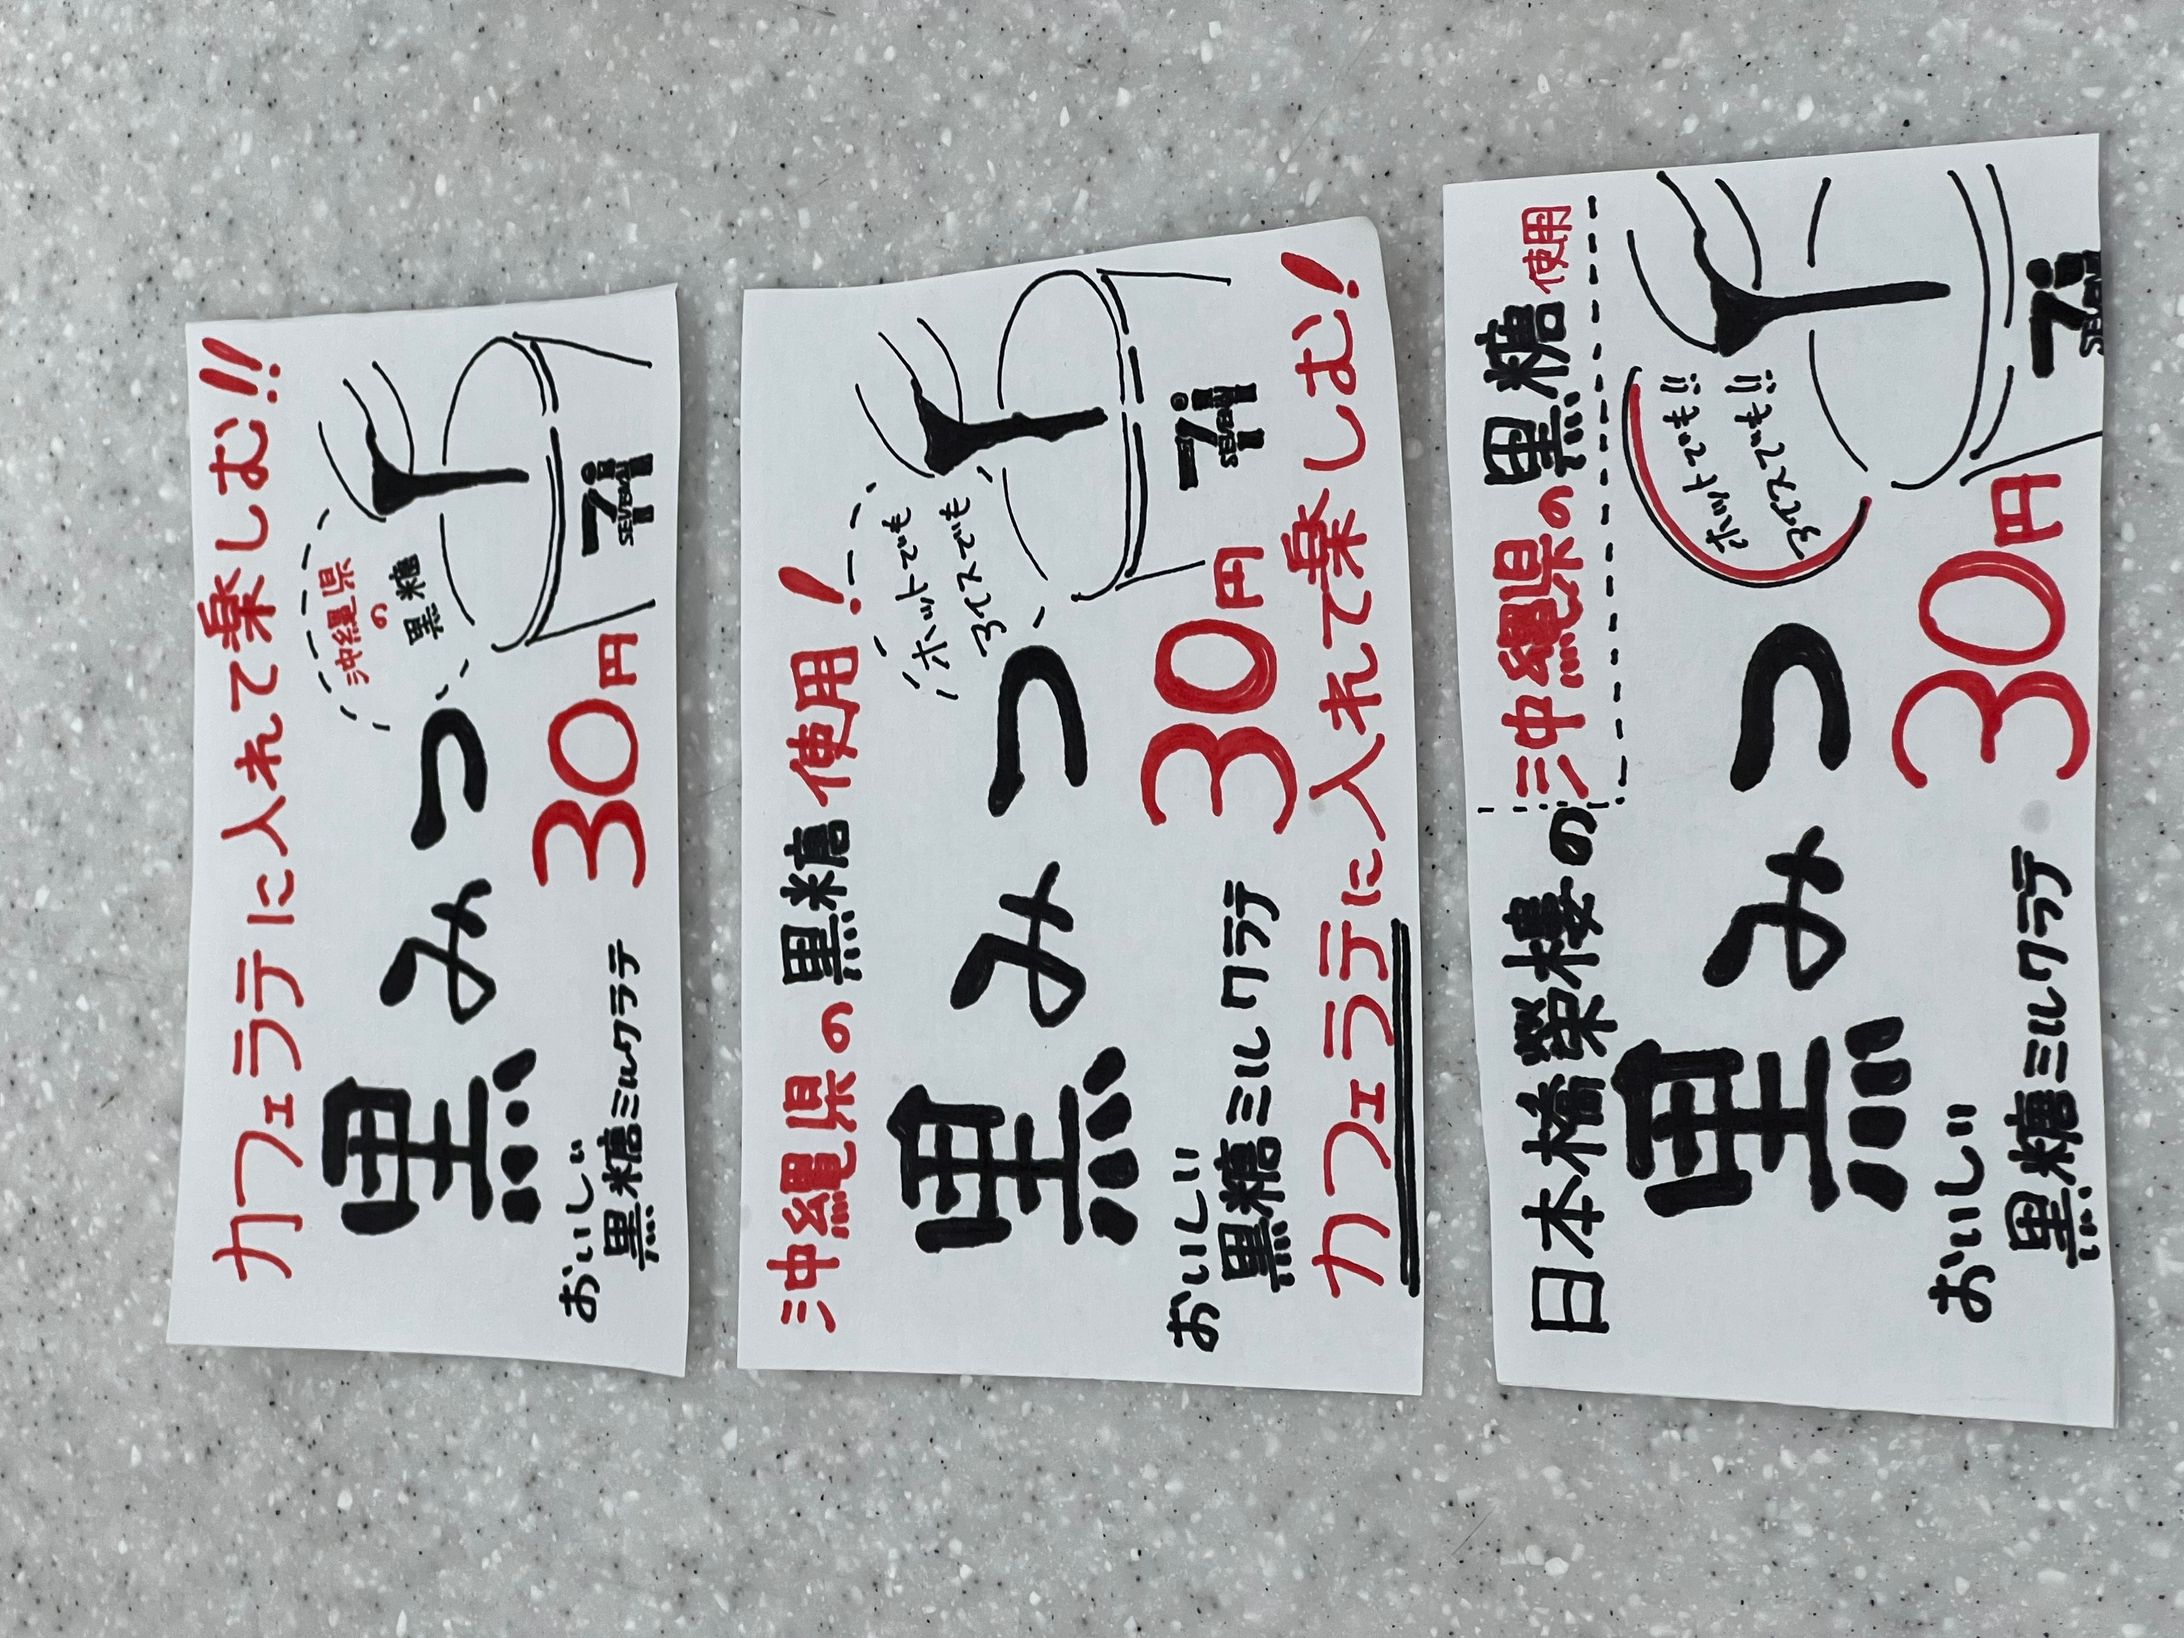 カフェラテに入れて楽しむ!!
沖縄県
の
黒糖
黒みつ
おいしい
黒糖ミルクラテ
30円
7i
SEVEN
沖縄県の黒糖使用!
ホットでも
アイスでも
黒みつ
おいしい
黒糖ミルクラテ
30円
7i
SEVEN
カフェラテに入れて楽しむ!
日本橋榮樓の沖縄県の黒糖使用
ホットでも!!
アイスでも!!
黒みつ
おいしい
黒糖ミルクラテ
30円
7i
SEVEN